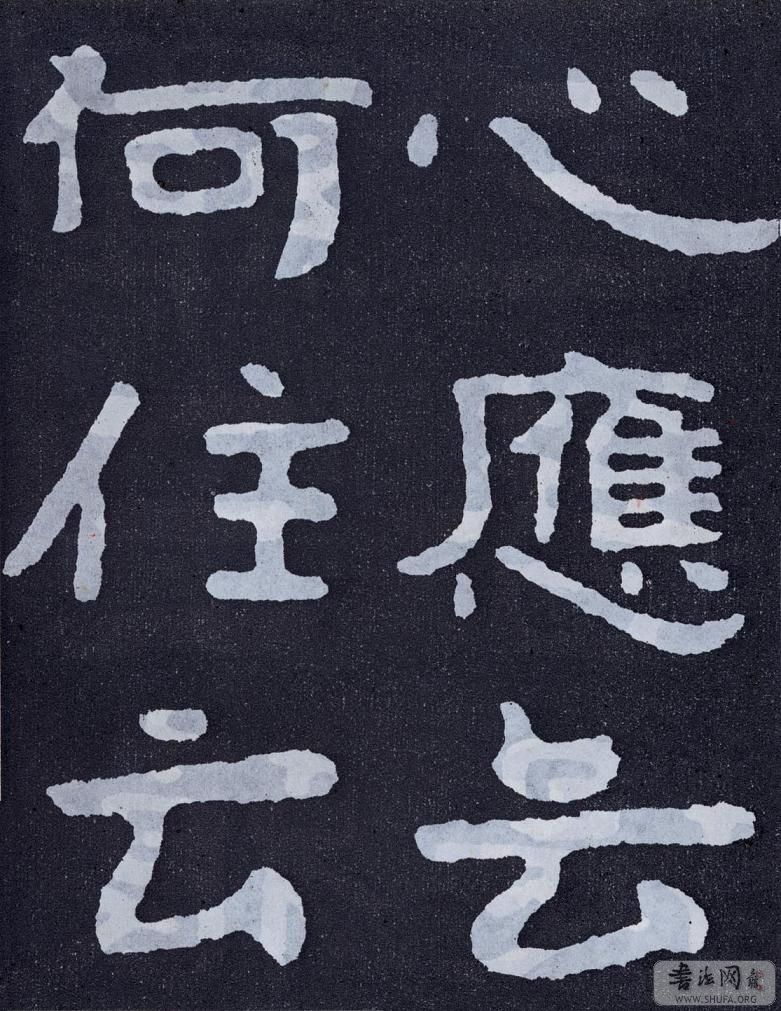 心應云
何住云
書法网
WWW.SHUFA.ORG